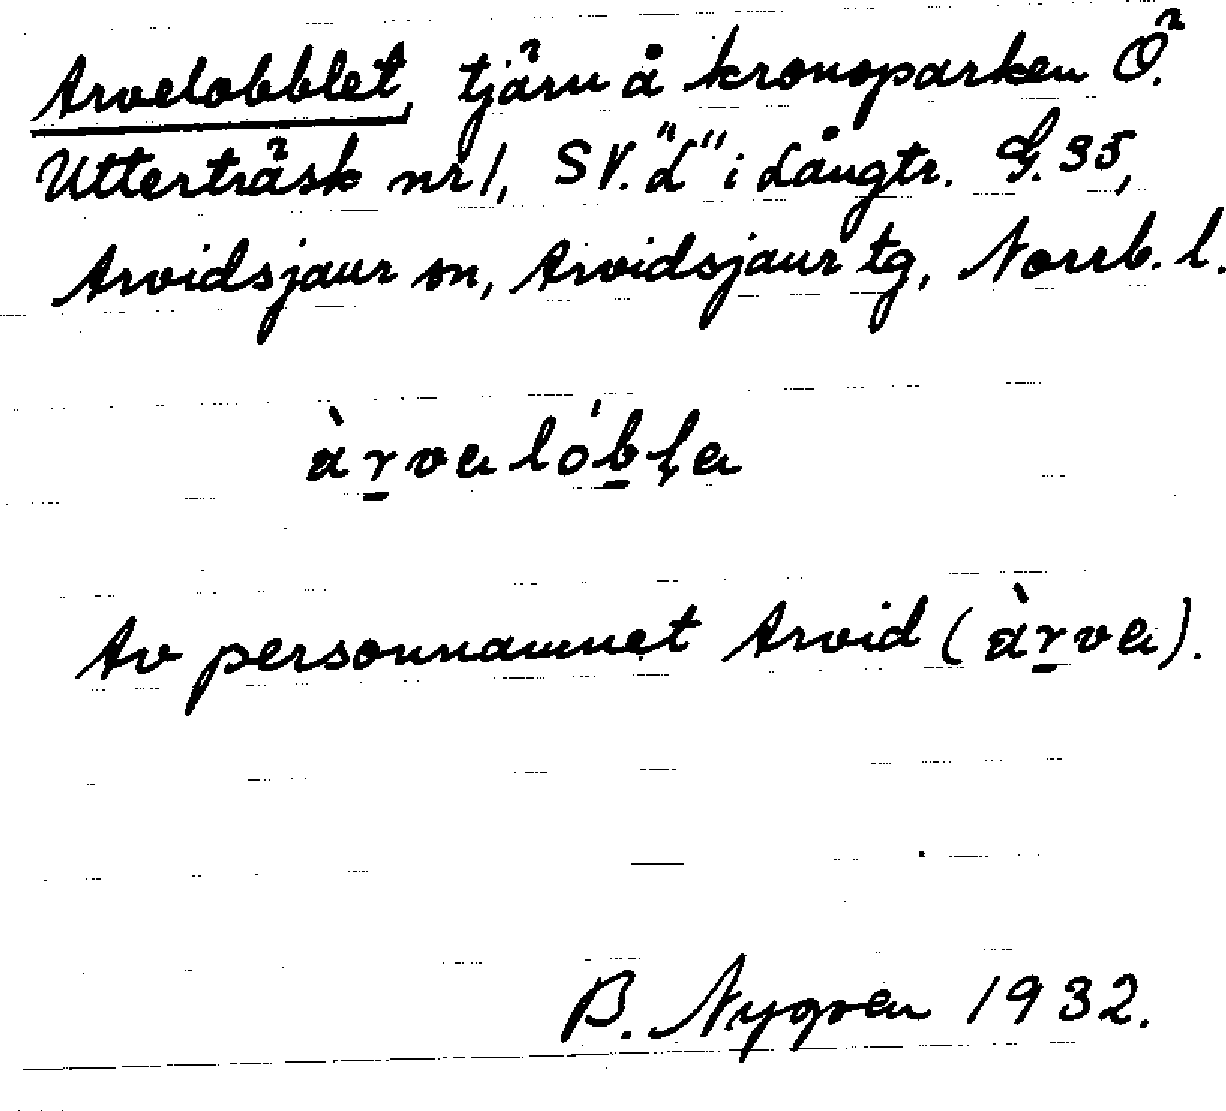 Arvelobblet, tjärn å kronoparken Ö.
Utterträsk nr 1, SV. "L" i Långtr. G. 35,
Arvidsjaur sn, Arvidsjaur tg, Norrb. l.
àr̲va lób̲ḷa
Av personnamnet Arvid (àr̲va).
B. Nygren 1932.